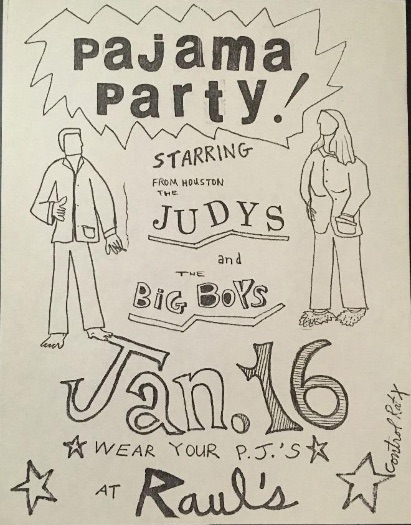 Pajama
Party!
STARRING
FROM HOUSTON
THE
JUDYS
and
THE
BIG BOYS
Jan. 16
WEAR YOUR P.J.'S
AT Raul's
Control Rat